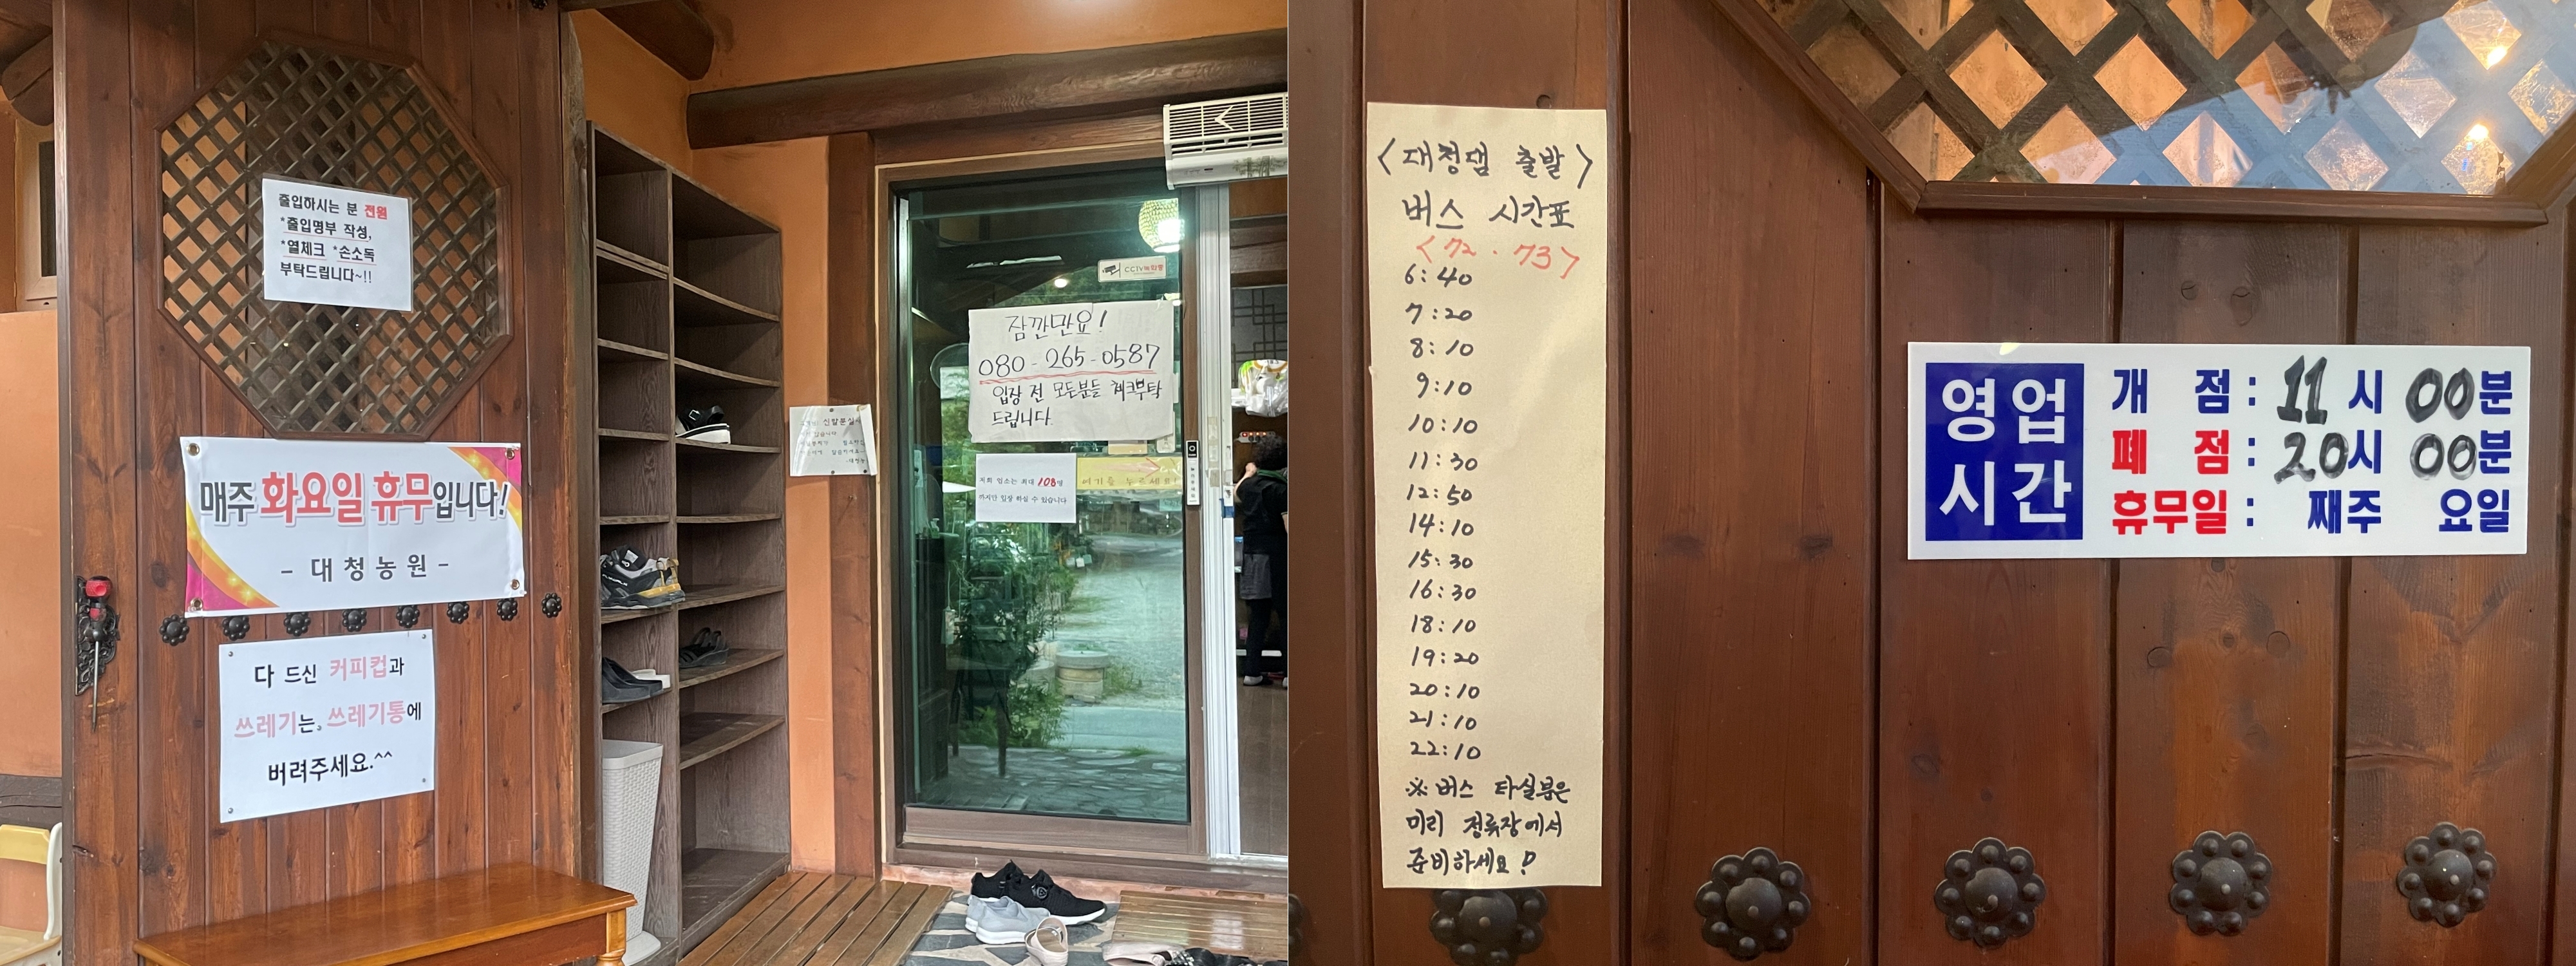 출입하시는 분 전원
*출입명부 작성,
*열체크 *손소독
부탁드립니다~!!
매주 화요일 휴무입니다!
- 대청농원 -
다 드신 커피컵과
쓰레기는, 쓰레기통에
버려주세요.^^
신발분실시
CCTV녹화중
잠깐만요!
080-265-0587
입장 전 모든분들 체크부탁
드립니다.
저희 업소는 최대 108명
까지만 입장 하실 수 있습니다
여기를 누르세요!
<대청댐 출발>
버스 시간표
<72·73>
6:40
7:20
8:10
9:10
10:10
11:30
12:50
14:10
15:30
16:30
18:10
19:20
20:10
21:10
22:10
※ 버스 타실분은
미리 정류장에서
준비하세요!
영업
시간
개 점: 11시 00분
폐 점: 20시 00분
휴무일: 째주 요일